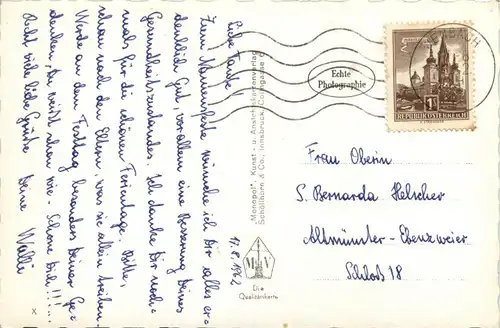 Liebe Tante!
Zum Namensfeste wünsche ich Dir alles er-
denklich Gute, vor allem eine Besserung Deines
Gesundheitszustandes. Ich danke Dir noch-
mals für die schönen Ferientage. Bitte,
schau nach den Eltern, was sie allein treiben.
Werde an dem Festtag besonders Deiner Ge-
denken, Du weißt schon wie. Schone Dich!!!...
Recht viele liebe Grüße
Deine Walli
x
17.8.1962
"Monopol", Kunst- u. Ansichtskartenverlag
Schöllhorn & Co., Innsbruck, Colingasse
M V
Die
Qualitätskarte
Echte
Photographie
BACH
1S
REPUBLIK ÖSTERREICH
Frau Oberin
S. Bernarda Helscher
Altmünster-Ebenzweier
Schloß 18